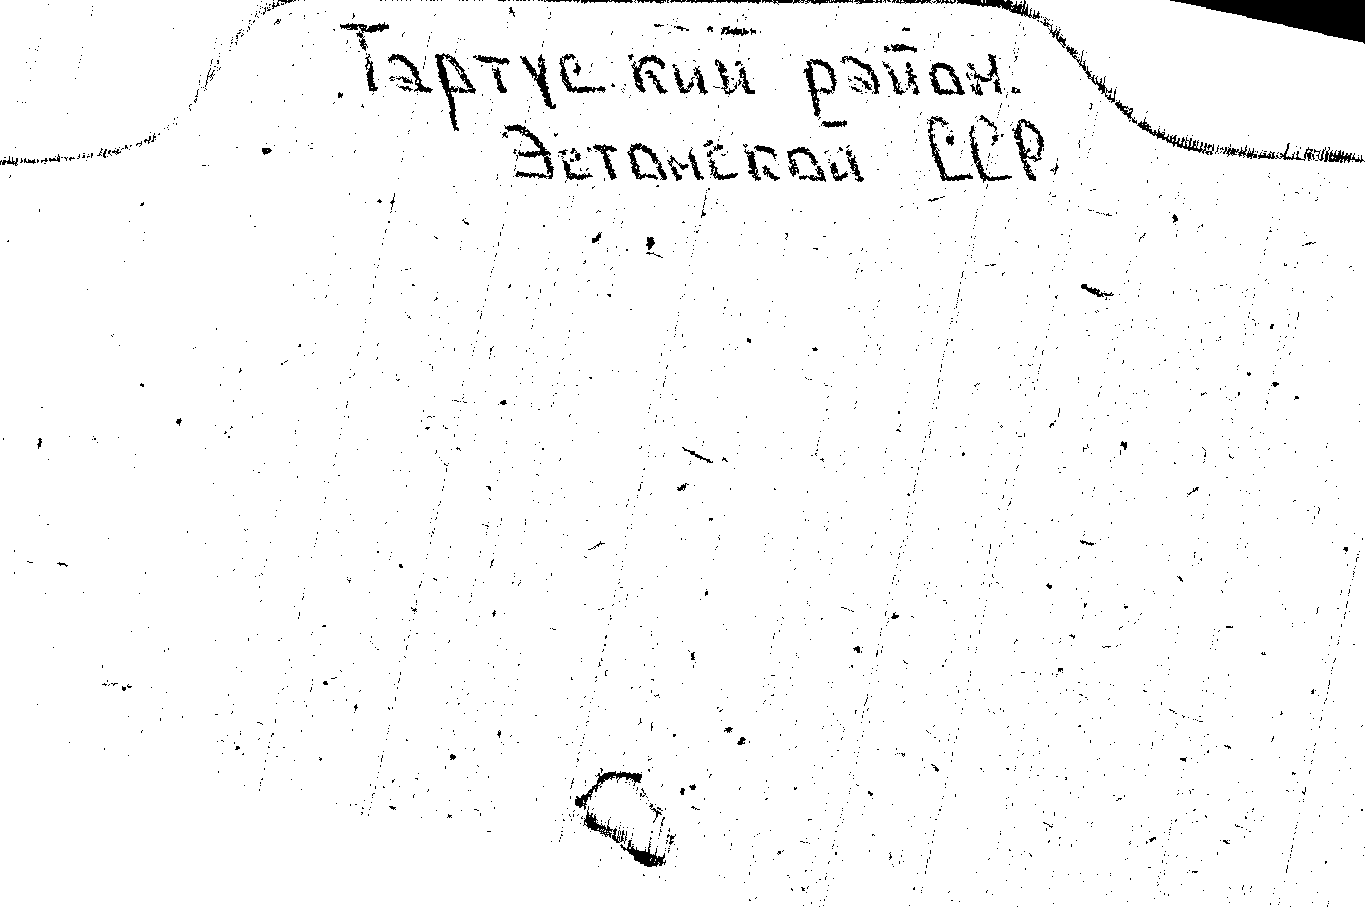 Тартуский район.
Эстонской ССР